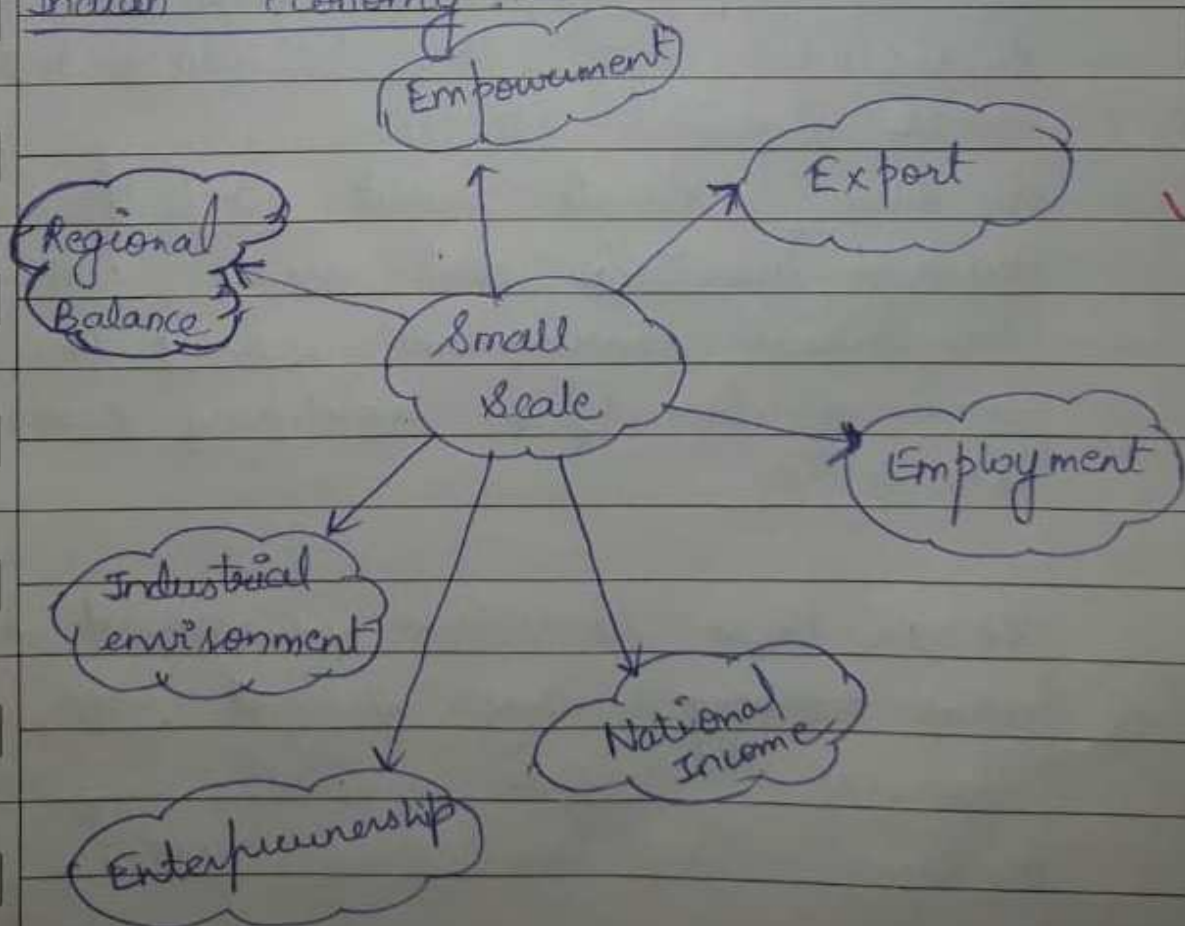 Indian Economy :
Empowerment
Export
Regional
Balance
Small
Scale
Employment
Industrial
environment
National
Income
Enterpreunership